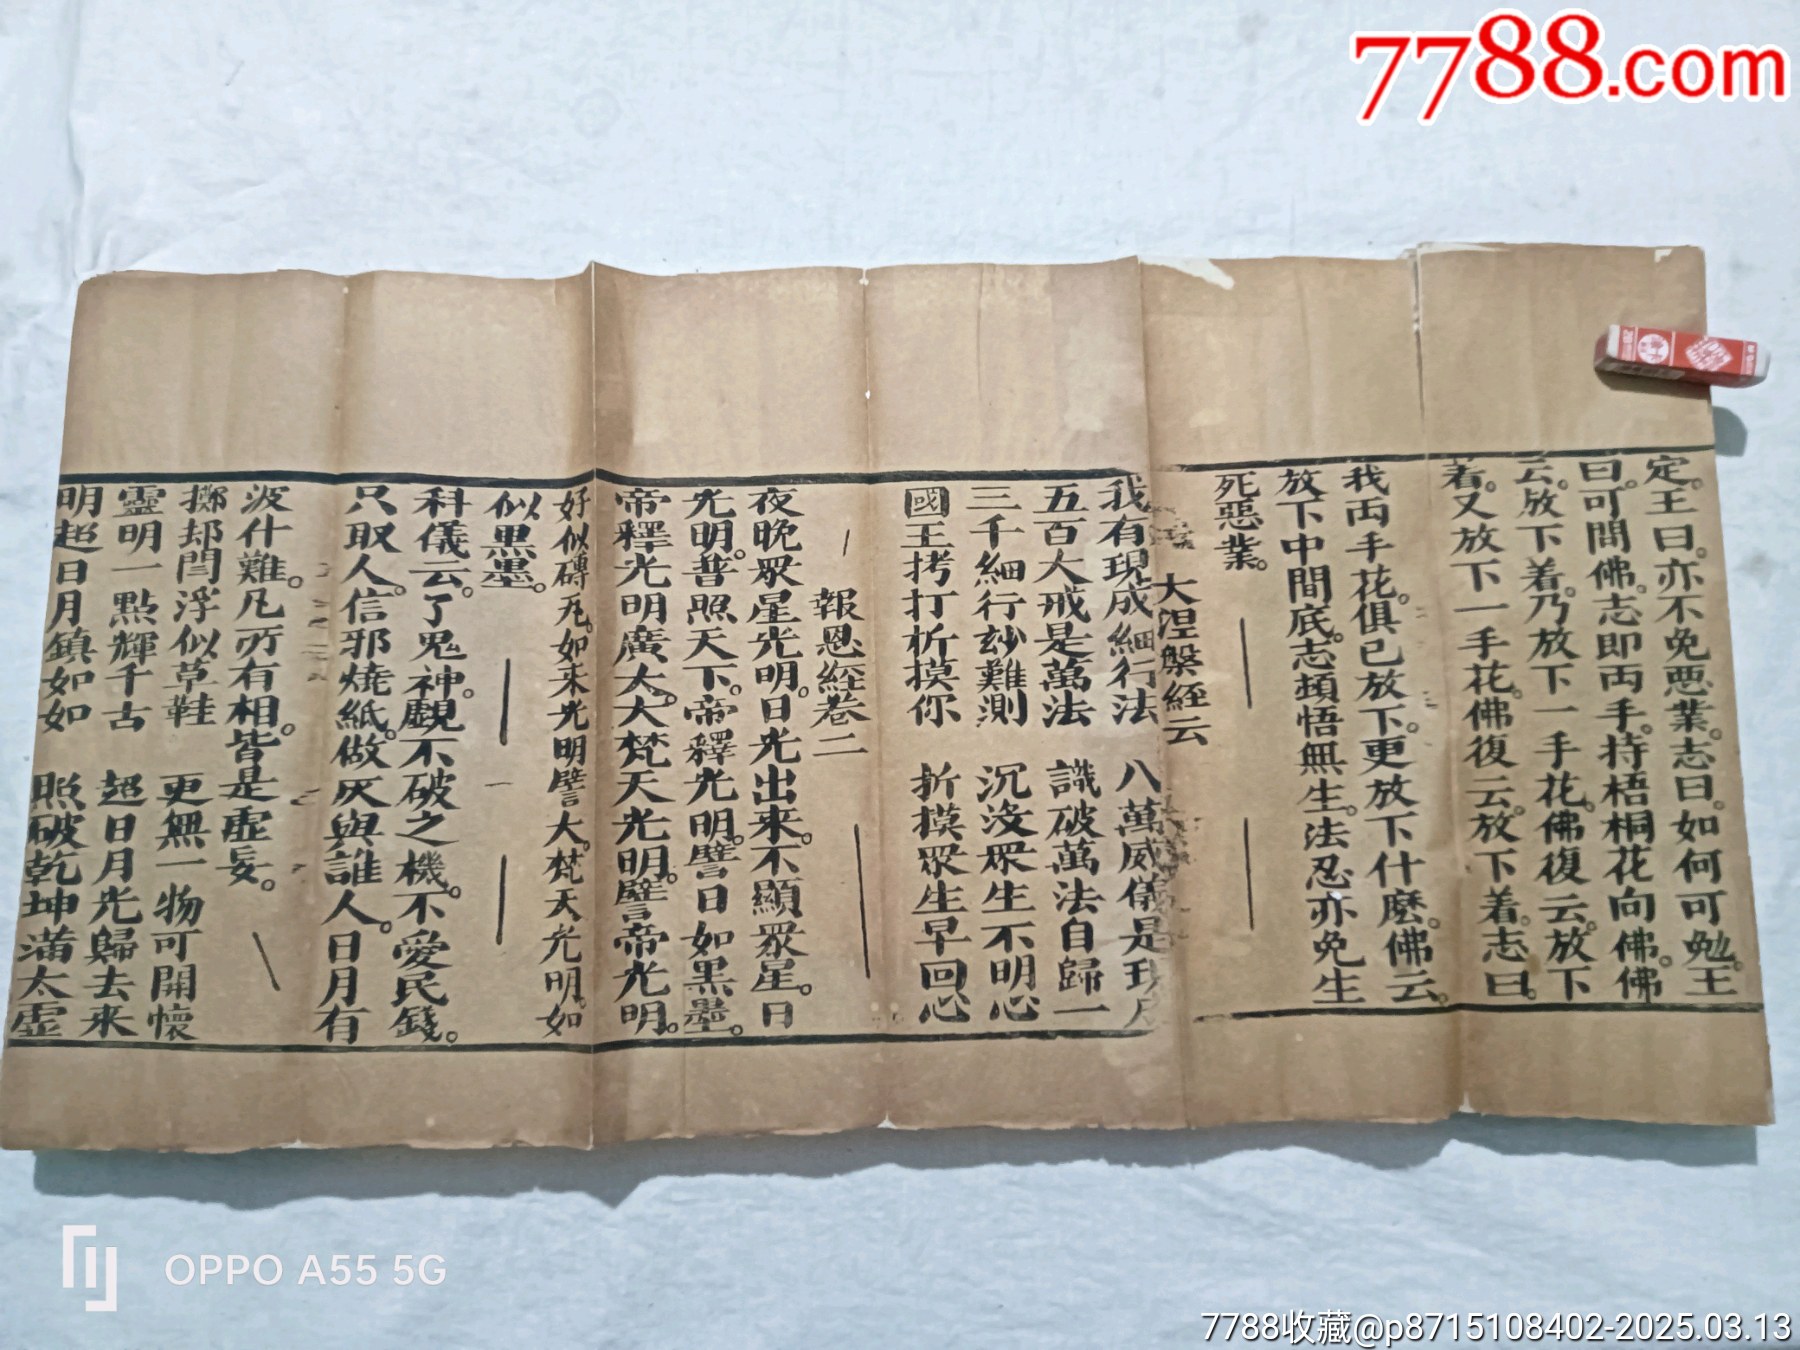 7788.com
定。王曰。亦不免惡業。志曰。如何可免。王
曰。可問佛。志即両手。持梧桐花向佛。佛
云。放下着。乃放下一手花。佛復云。放下
着。又放下一手花。佛復云。放下着。志曰。
我両手花。俱已放下。更放下什麽。佛云。
放下中間底。志頓悟無生。法忍亦免生
死惡業。
大涅槃經云
我有現成細行法 八萬威儀是現成
五百大戒是萬法 識破萬法自歸一
三千細行妙難測 沉没眾生不明心
國王拷打折摸你 折摸眾生早回心
報恩經卷二
夜晚眾星光明。日光出來。不顯眾星。日
光明。普照天下。帝釋光明。譬日如黑墨。
帝釋光明廣大。大梵天光明。譬帝光明。
好似磚瓦。如来光明譬大。梵天光明。如
似黑墨。
科儀云。了鬼神。覷不破之機。不愛民錢。
只取人。信邪燒紙。做灰與誰人。日月有
波什難。凡所有相。皆是虛妄。
擲却閻浮似草鞋 更無一物可開懷
靈明一點輝千古 超日月光歸去来
明超日月鎮如如 照破乾坤滿太虛
OPPO A55 5G
7788收藏@p8715108402-2025.03.13